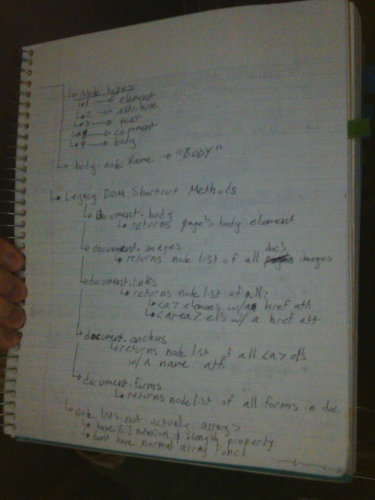 Node Types
1 → element
2 → attribute
3 → text
8 → comment
9 → body
body.nodeName → "BODY"
Legacy DOM Shortcut Methods
document.body
returns page's body element
document.images
returns node list of all doc's images
document.links
returns node list of all:
<a> elements w/ a href att
<area> els w/ a href att
document.anchors
returns node list of all <a> els
w/ a name att
document.forms
returns node list of all forms in doc
node lists not actually arrays
have [] notation & length property
dont have normal array funcs